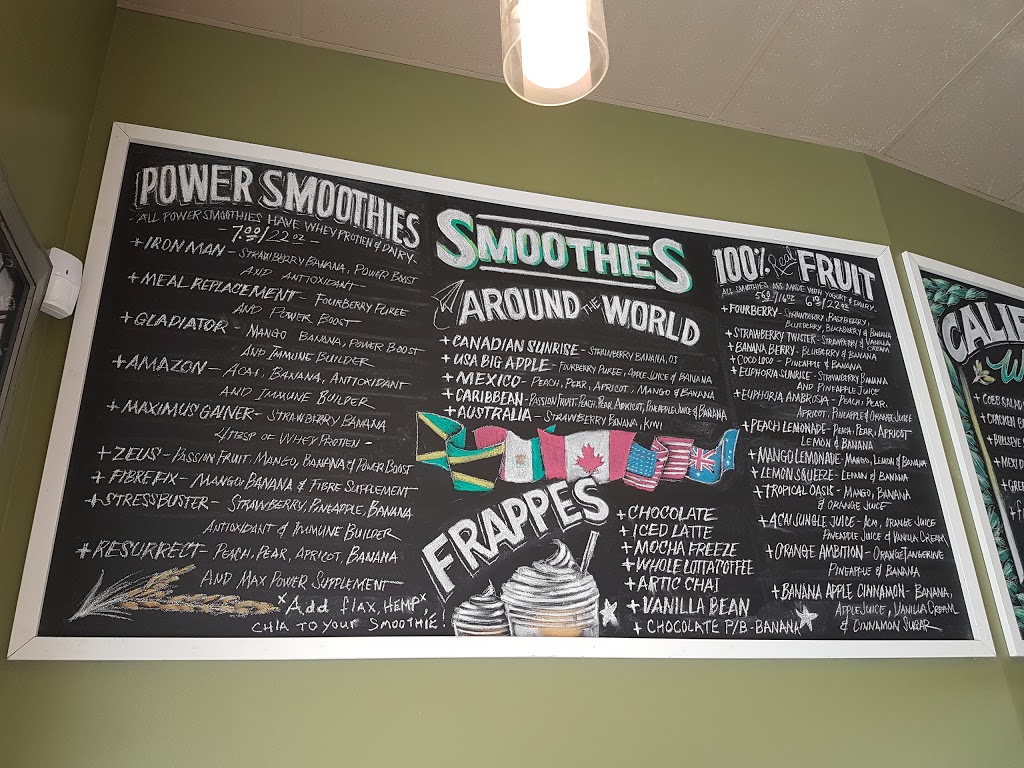 POWER SMOOTHIES
- ALL POWER SMOOTHIES HAVE WHEY PROTIEN & DAIRY.
- 7.00/22oz -
+ IRON MAN - STRAWBERRY BANANA, POWER BOOST
AND ANTIOXIDANT -
+ MEAL REPLACEMENT - FOURBERRY PUREE
AND POWER BOOST
+ GLADIATOR - MANGO BANANA, POWER BOOST
AND IMMUNE BUILDER
+ AMAZON - ACAI, BANANA, ANTIOXIDANT
AND IMMUNE BUILDER
+ MAXIMUS GAINER - STRAWBERRY BANANA
4 TBSP OF WHEY PROTIEN -
+ ZEUS - PASSION FRUIT, MANGO, BANANA & POWER BOOST
+ FIBRE FIX - MANGO BANANA & FIBRE SUPPLEMENT
+ STRESS BUSTER - STRAWBERRY, PINEAPPLE, BANANA
ANTIOXIDANT & IMMUNE BUILDER
+ RESURRECT - PEACH, PEAR, APRICOT, BANANA
AND MAX POWER SUPPLEMENT
*Add flax, HEMP*
CHIA TO YOUR SMOOTHIE!
SMOOTHIES
AROUND THE WORLD
+ CANADIAN SUNRISE - STRAWBERRY BANANA, OJ
+ USA BIG APPLE - FOURBERRY PUREE, APPLE JUICE & BANANA
+ MEXICO - PEACH, PEAR, APRICOT, MANGO & BANANA
+ CARIBBEAN - PASSION FRUIT, PEACH, PEAR, APRICOT, PINEAPPLE JUICE & BANANA
+ AUSTRALIA - STRAWBERRY BANANA, KIWI
FRAPPES
+ CHOCOLATE
+ ICED LATTE
+ MOCHA FREEZE
+ WHOLE LOTTA TOFFEE
+ ARTIC CHAI
+ VANILLA BEAN
+ CHOCOLATE P/B - BANANA
100% Real FRUIT
ALL SMOOTHIES ARE MADE WITH YOGURT & DAIRY
+ FOURBERRY - STRAWBERRY, RASPBERRY,
BLUEBERRY, BLACKBERRY & BANANA
+ STRAWBERRY TWISTER - STRAWBERRY & VANILLA
CREAM
+ BANANA BERRY - BLUEBERRY & BANANA
+ COCO LOCO - PINEAPPLE & BANANA
+ EUPHORIA SUNRISE - STRAWBERRY BANANA
AND PINEAPPLE JUICE
+ EUPHORIA AMBROSIA - PEACH, PEAR,
APRICOT, PINEAPPLE & ORANGE JUICE
+ PEACH LEMONADE - PEACH, PEAR, APRICOT
LEMON & BANANA
+ MANGO LEMONADE - MANGO, LEMON & BANANA
+ LEMON SQUEEZE - LEMON & BANANA
+ TROPICAL OASIS - MANGO, BANANA
& ORANGE JUICE
+ ACAI JUNGLE JUICE - ACAI, ORANGE JUICE
PINEAPPLE JUICE & VANILLA CREAM
+ ORANGE AMBITION - ORANGE TANGERINE
PINEAPPLE & BANANA
+ BANANA APPLE CINNAMON - BANANA,
APPLE JUICE, VANILLA CREAM
& CINNAMON SUGAR
CALIF
+ COBB SALAD
+ CHICKEN
+ BULLSEYE